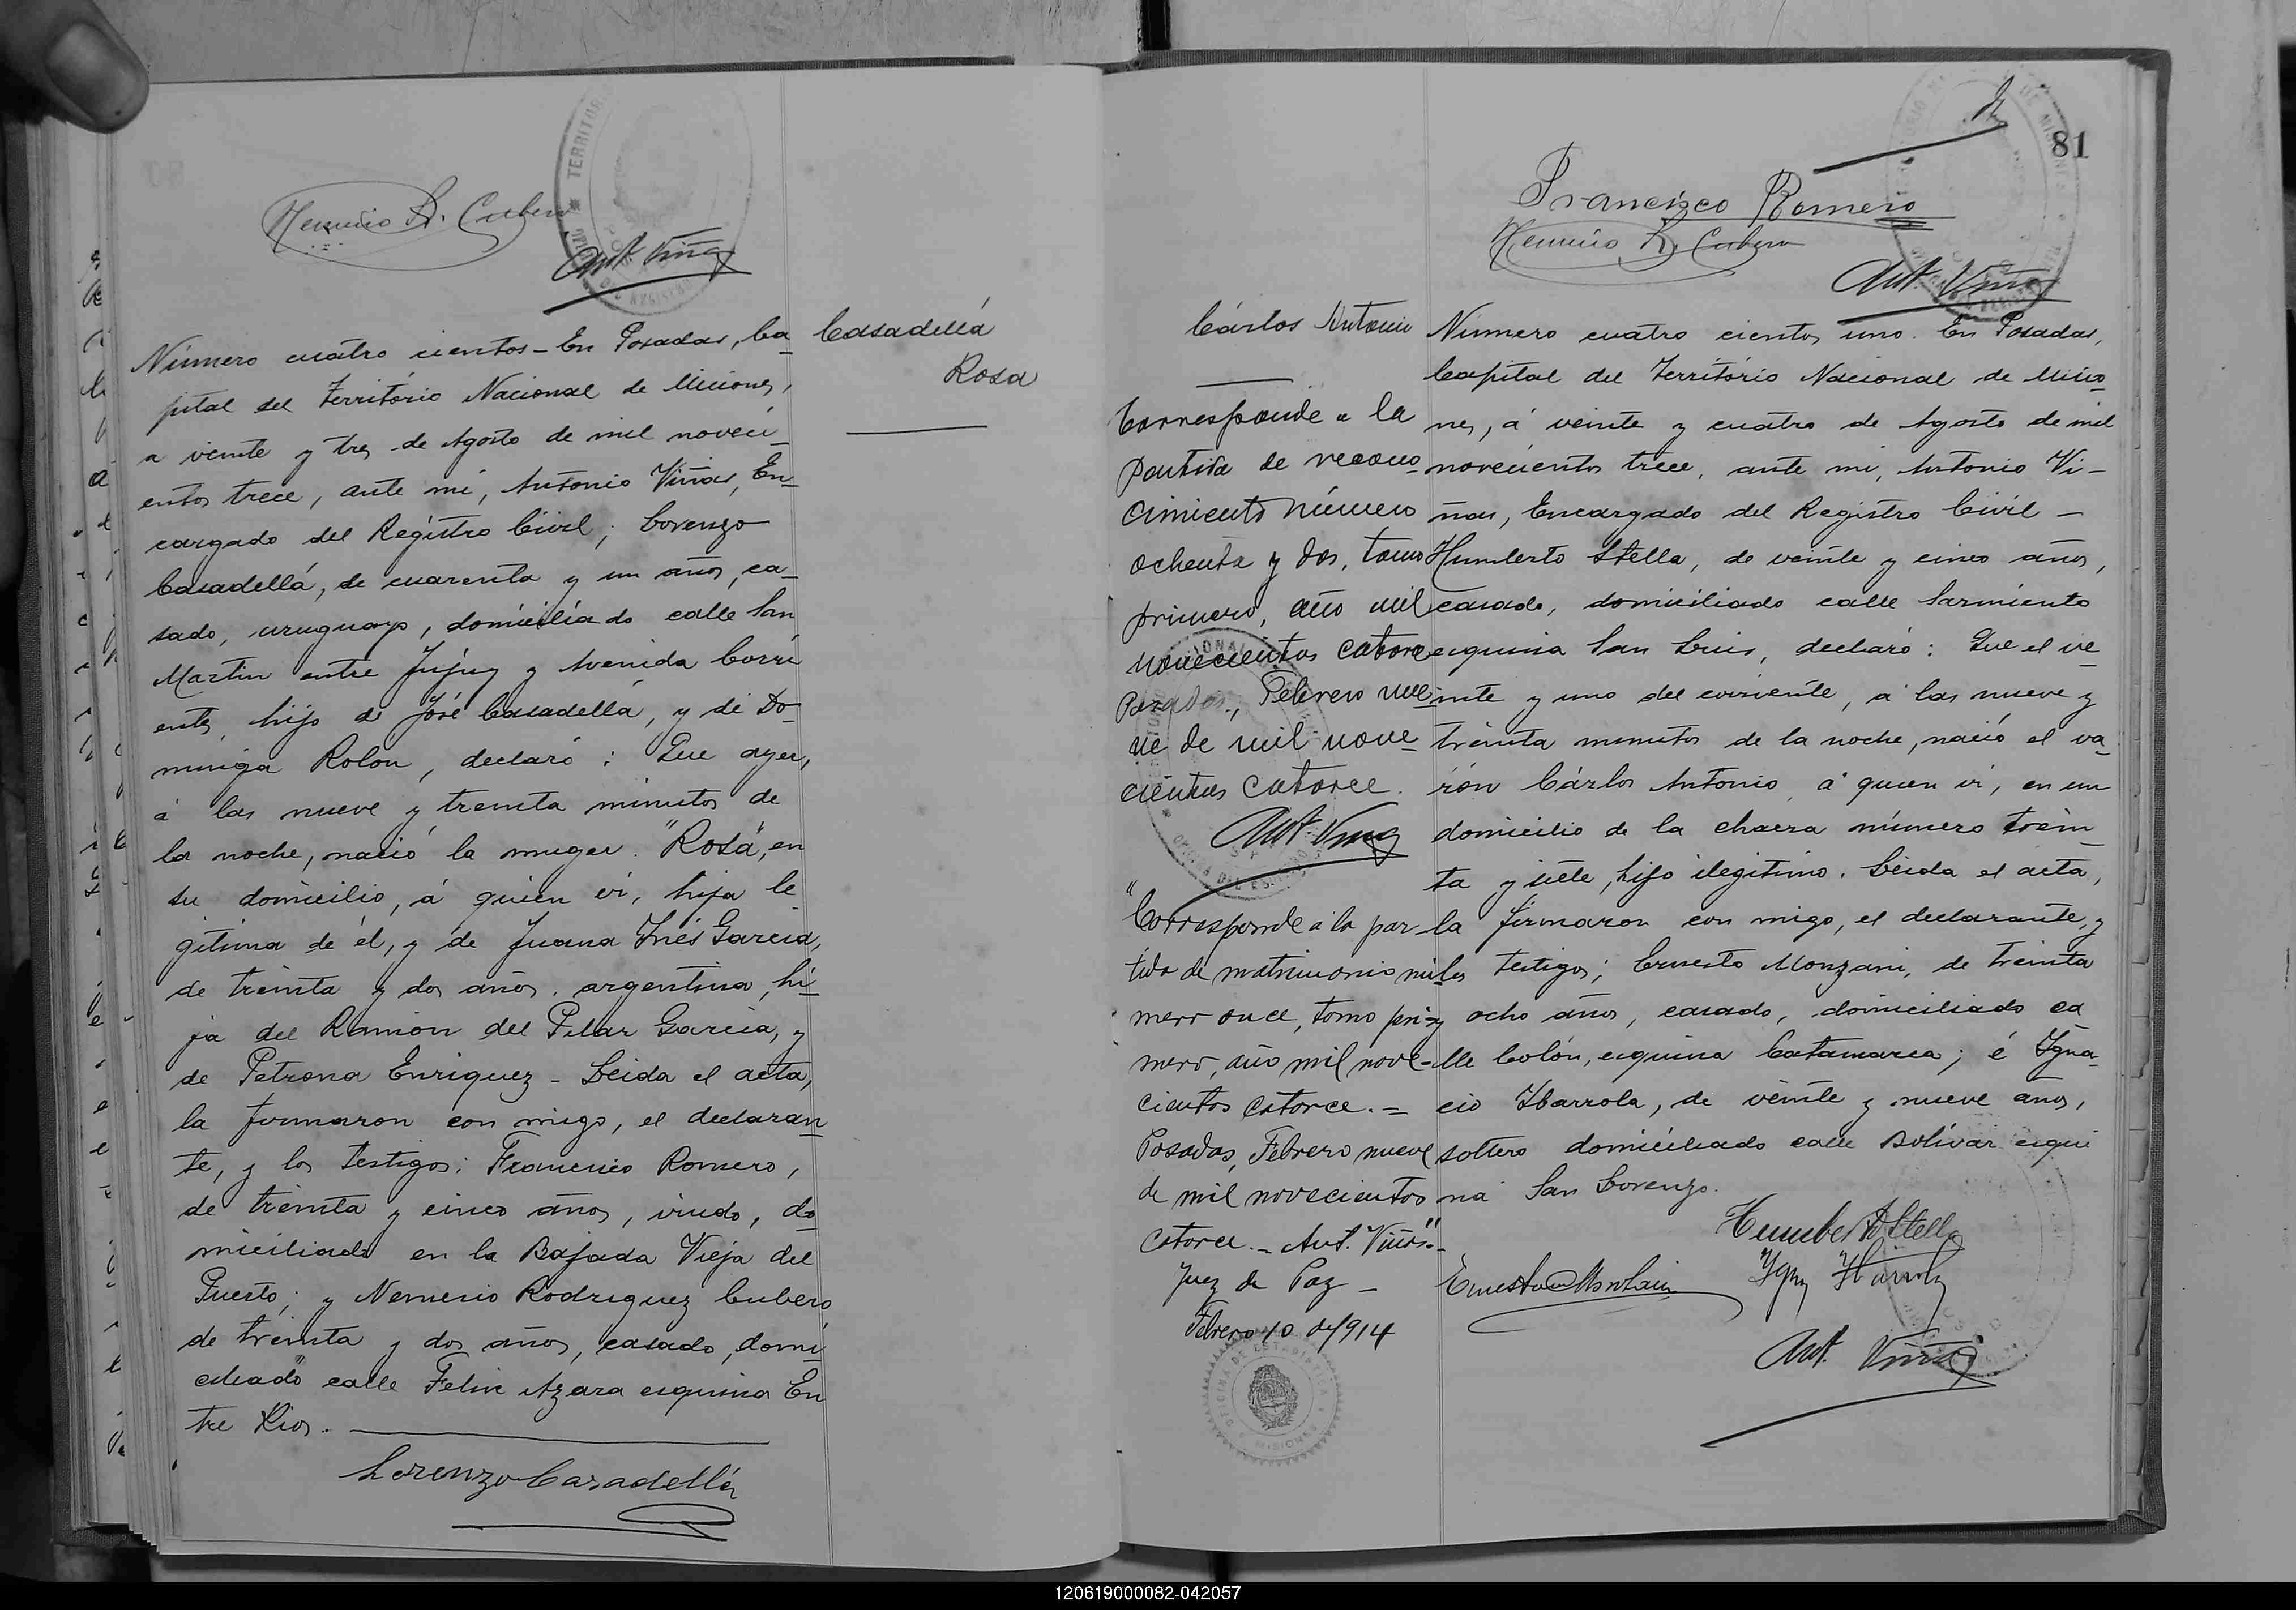 Nemesio R. Cubero
Ant. Viñas
Casadellá
Rosa
Número cuatro cientos - En Posadas, Ca
pital del Território Nacional de Misiones,
a veinte y tres de Agosto de mil noveci
entos trece, ante mi, Antonio Viñas, En
cargado del Registro Civil; Lorenzo
Casadellá, de cuarenta y un años, ca
sado, uruguayo, domiciliado calle San
Martin entre Jujuy y Avenida Corri
entes, hijo de José Casadellá, y de Do
minga Rolon, declaró: Que ayer,
á las nueve y treinta minutos de
la noche, nació la muger "Rosa", en
su domicilio, á quien vi, hija le
gitima de él, y de Juana Inés Garcia,
de treinta y dos años, argentina, hi
ja del Ramón del Pilar Garcia, y
de Petrona Enriquez - Leida el acta,
la firmaron con migo, el declaran
te, y los testigos: Francisco Romero,
de treinta y cinco años, viudo, do
miciliado en la Bajada Vieja del
Puerto; y Nemesio Rodriguez Cubero
de treinta y dos años, casado, domi
ciliado calle Felix Azara esquina En
tre Rios.
Lorenzo Casadellá
81
Francisco Romero
Nemesio R. Cubero
Ant. Viñas
Cárlos Antonio
Corresponde a la
partida de recono
cimiento número
ochenta y dos, tomo
primero, año mil
novecientos catorce
Posadas, Febrero nue
ve de mil nove
cientos catorce.
Ant. Viñas
"Corresponde á la par
tida de matrimonio nú
mero once, tomo pri
mero, año mil nove
cientos catorce. =
Posadas, Febrero nueve
de mil novecientos
catorce. - Ant. Viñas" -
Juez de Paz -
Febrero 10 de 1914
Número cuatro cientos uno. En Posadas,
Capital del Território Nacional de Misio
nes, á veinte y cuatro de Agosto de mil
novecientos trece, ante mi, Antonio Vi-
ñas, Encargado del Registro Civil -
Humberto Stella, de veinte y cinco años,
casado, domiciliado calle Sarmiento
esquina San Luis, declaró: Que el ve
inte y uno del corriente, á las nueve y
treinta minutos de la noche, nació el va
rón Cárlos Antonio á quien vi, en un
domicilio de la chacra número trein
ta y siete, hijo ilegitimo. Leida el acta,
la firmaron con migo, el declarante, y
los testigos; Ernesto Monzani, de treinta
y ocho años, casado, domiciliado ca
lle Colón, esquina Catamarca; é Igna
cio Ibarrola, de veinte y nueve años,
soltero domiciliado calle Bolívar esqui
na San Lorenzo.
Humberto Stella
Ernesto
Ant. Viñas
120619000082-042057